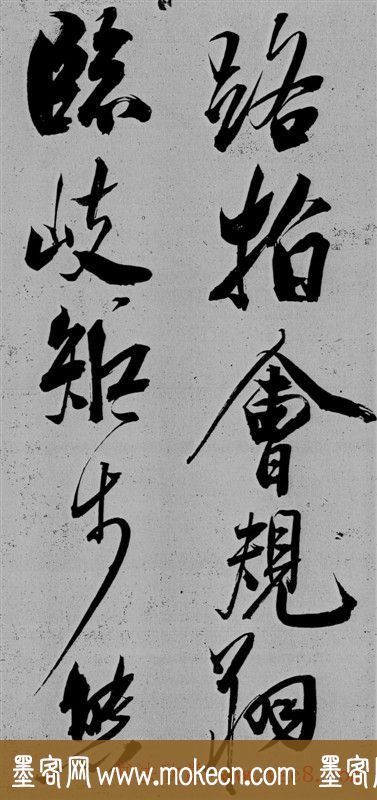 路指會規翔
臨岐矩步
墨客网 www.mokecn.com 墨客